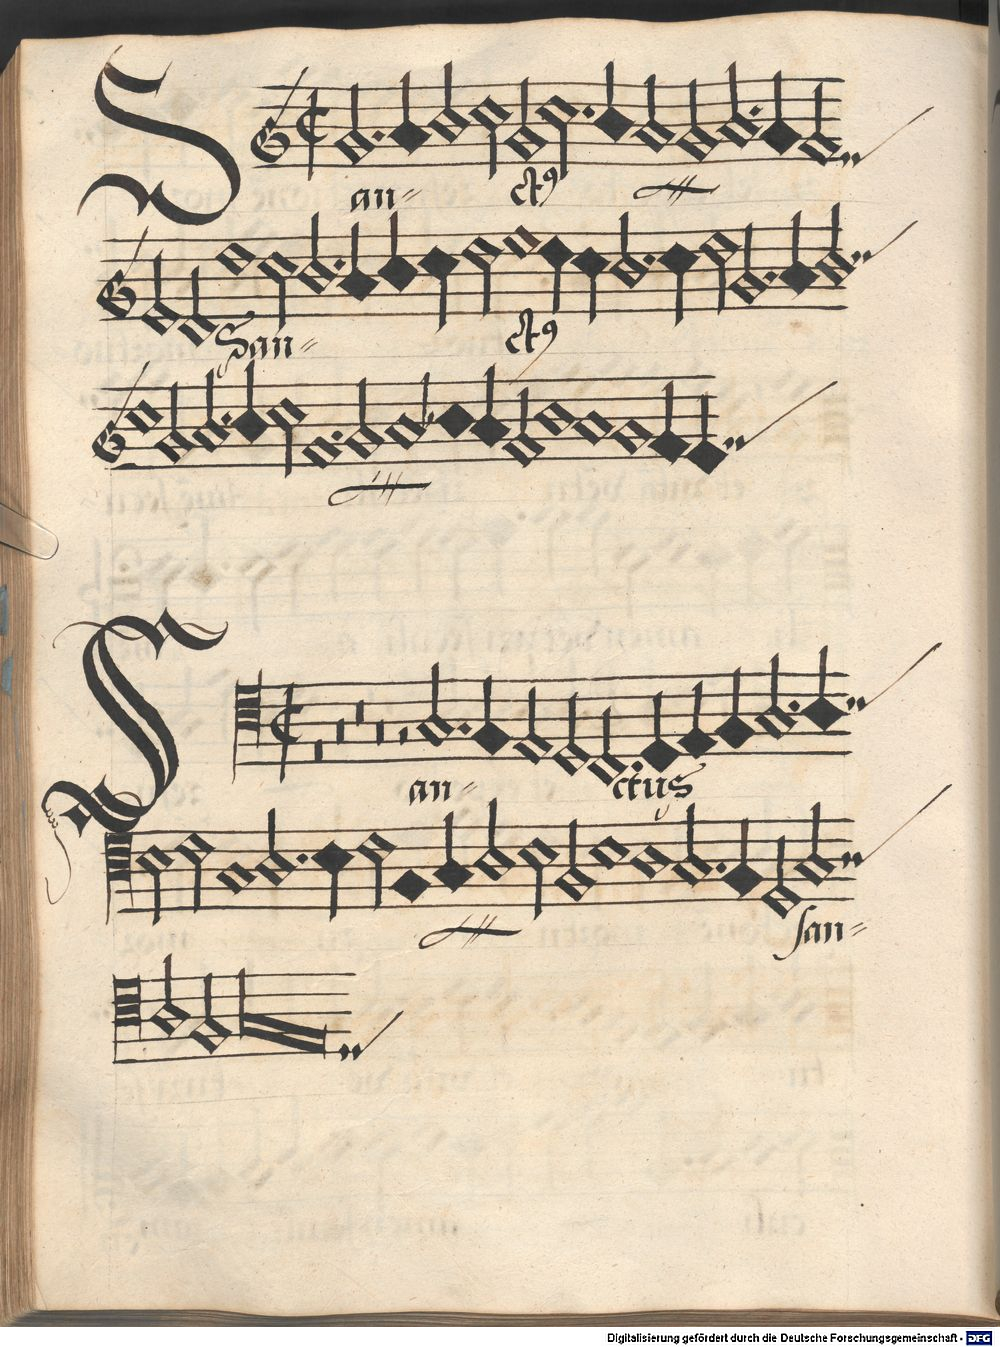 San- ctꝰ
San- ctꝰ
San- ctus
san-
Digitalisierung gefördert durch die Deutsche Forschungsgemeinschaft - DFG